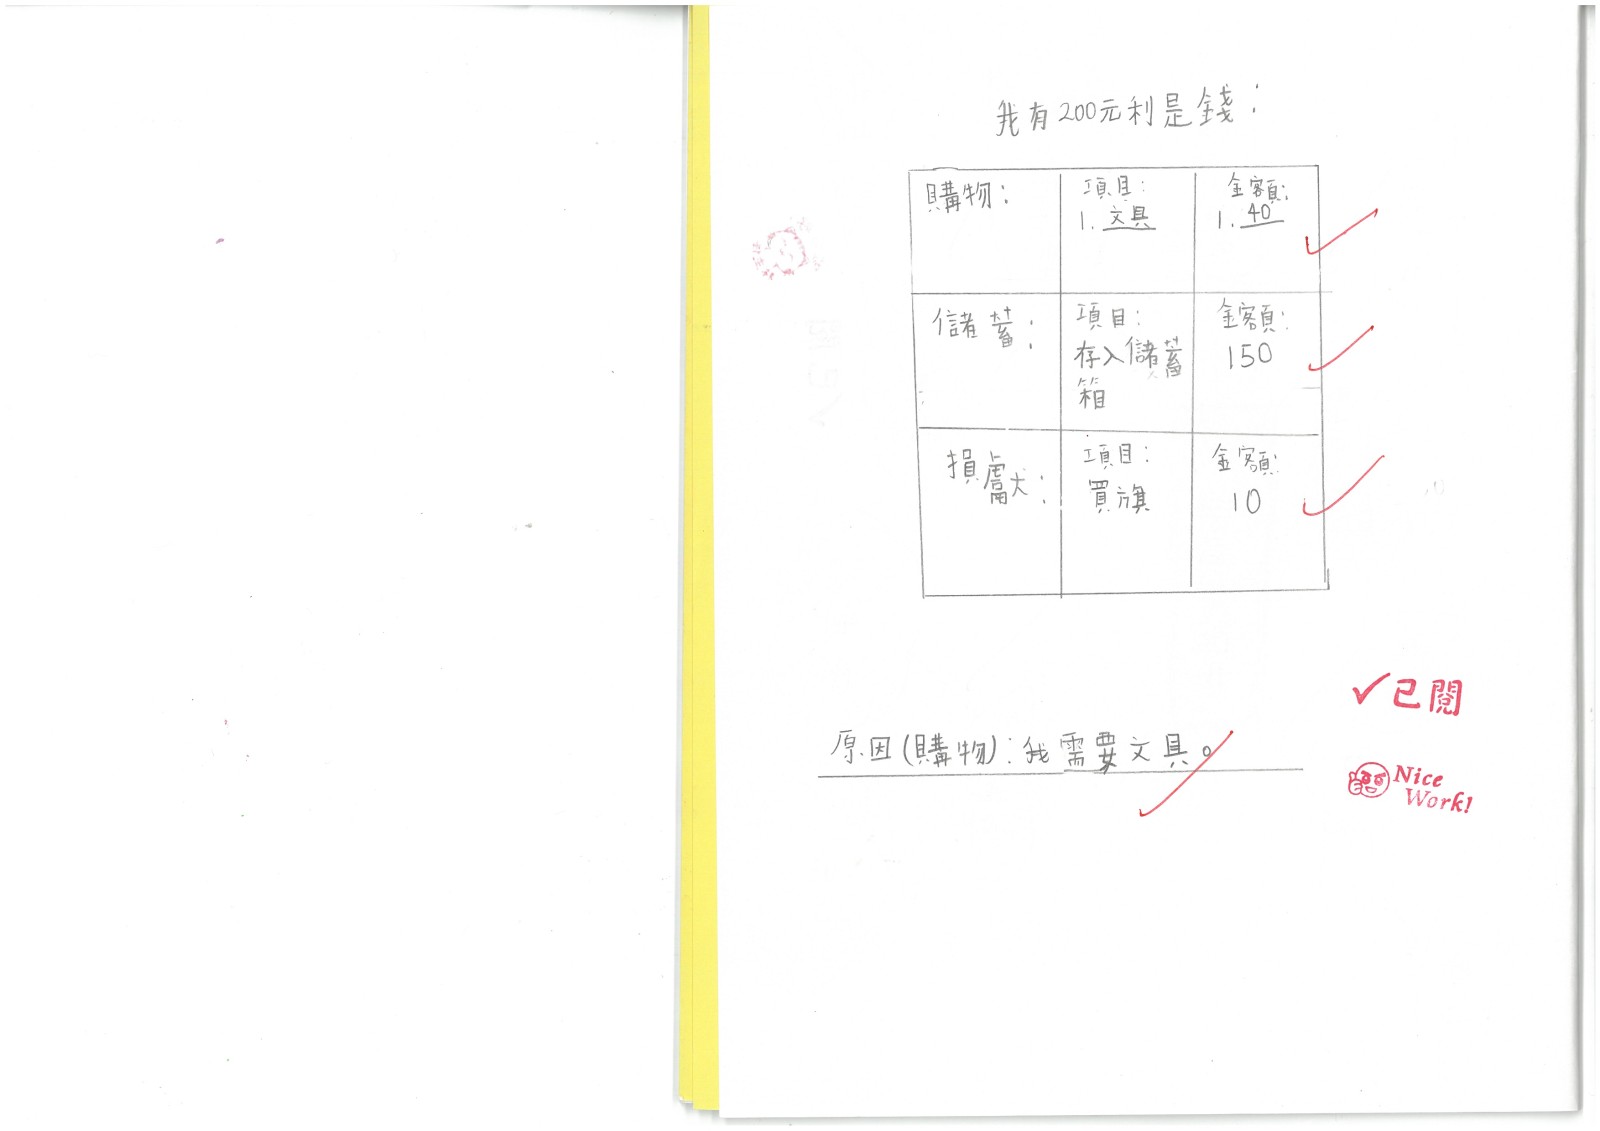 我有200元利是錢：
購物：
項目：
1. 文具
金額：
1. 40
儲蓄：
項目：
存入儲蓄
箱
金額：
150
損獻：
項目：
買旗
金額：
10
✓已閱
原因(購物)：我需要文具。
Nice
Work!